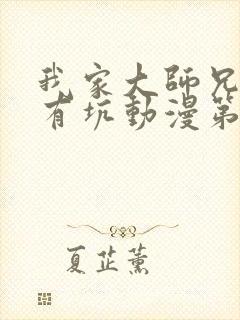 我家大師兄
有坑動漫第
夏芷薰